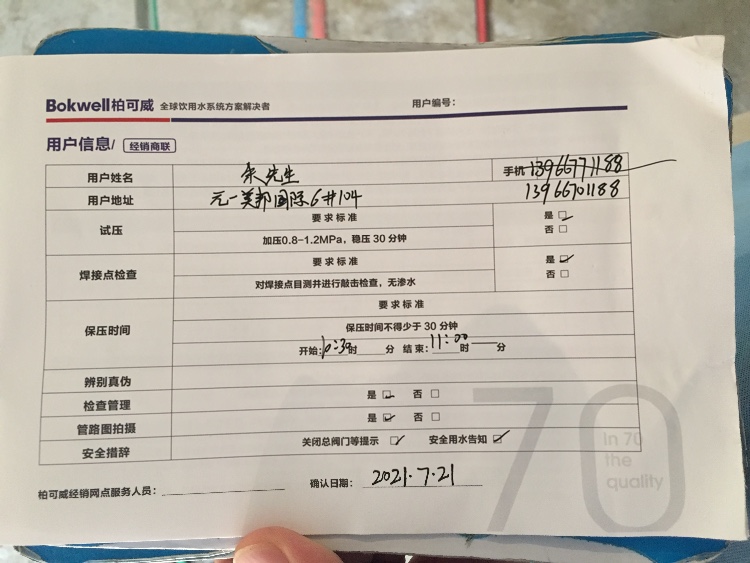 Bokwell柏可威 全球饮用水系统方案解决者 用户编号:
用户信息/ 经销商联
用户姓名 余先生 手机 13966771188
用户地址 元一美邦国际6#104 13966701188
试压 要求标准 是 否
加压0.8-1.2MPa,稳压30分钟
焊接点检查 要求标准 是 否
对焊接点目测并进行敲击检查,无渗水
保压时间 要求标准
保压时间不得少于30分钟
开始:10:30时 分 结束:11:00时 分
辨别真伪
检查管理 是 否
管路图拍摄 是 否
安全措辞 关闭总阀门等提示 安全用水告知
70
In 70
the
quality
柏可威经销网点服务人员: 确认日期: 2021.7.21